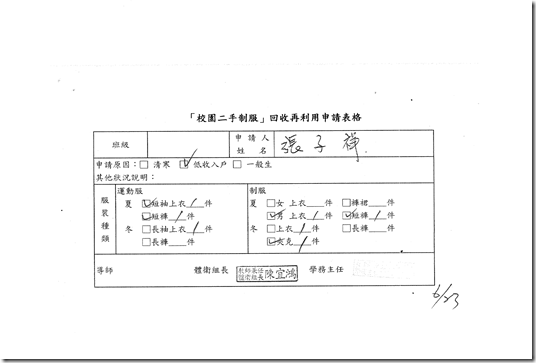 「校園二手制服」回收再利用申請表格
班級 申請人姓名 張子禪
申請原因：□清寒 ☑低收入戶 □一般生
其他狀況說明：
服裝種類
運動服 制服
夏 ☑短袖上衣 1 件 夏 □女上衣 件 □褲裙 件
☑短褲 1 件 ☑男上衣 1 件 ☑短褲 1 件
冬 □長袖上衣 1 件 冬 □上衣 件 □長褲 件
□長褲 件 ☑夾克 1 件
導師 體衛組長 教師兼任體衛組長 陳宜鴻 學務主任
6/23